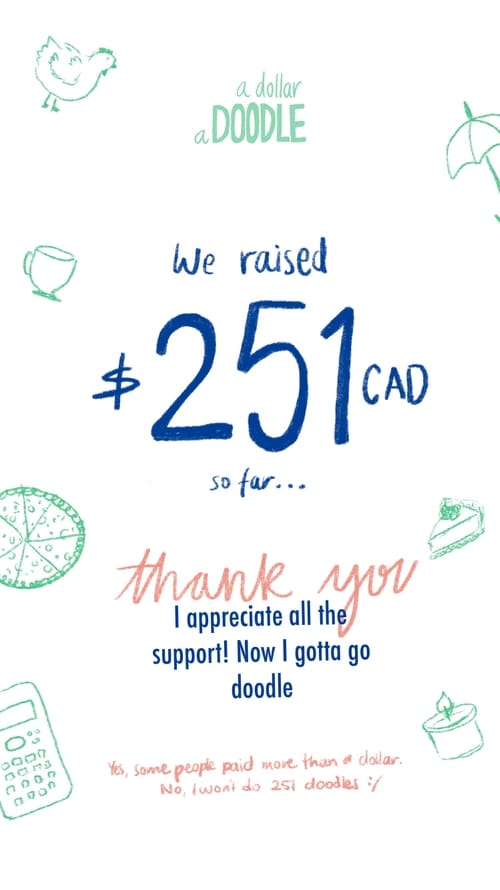 a dollar
a DOODLE
We raised
$251 CAD
so far...
thank you
I appreciate all the
support! Now I gotta go
doodle
Yes, some people paid more than a dollar.
No, I won't do 251 doodles :/